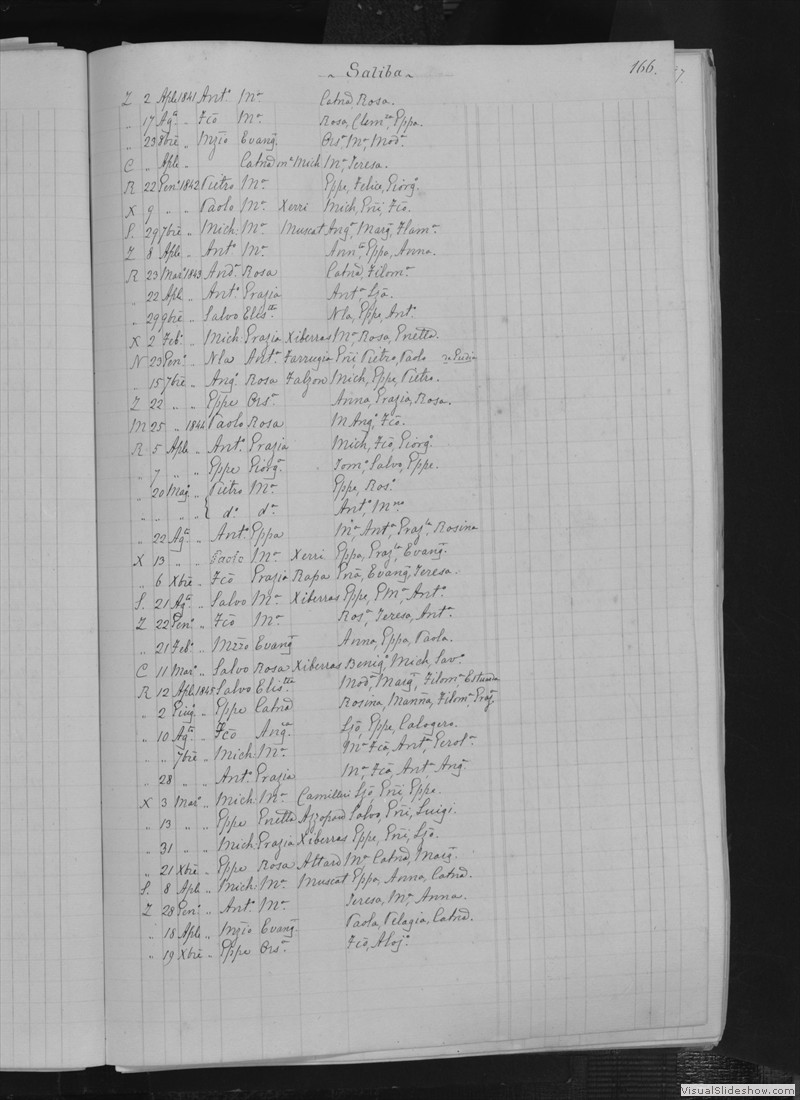 Saliba
166.
Z 2 Aple 1841 Anto Ma Catna, Rosa.
„ 17 Aga „ Fco Ma Rosa, Clemza, Eppa.
„ 23 8bre „ Mzio Evang Orsa Ma, Moda.
C „ Aple „ Catna ma Mich Ma, Teresa.
R 22 Geno 1842 Pietro Ma Eppe, Felice, Giorgo.
X 9 „ „ Paolo Ma Xerri Mich, Gni, Fco.
S. 29 7bre „ Mich Ma Muscat Anga, Marg, Flama.
Z 8 Aple „ Anto Ma Anna, Eppa, Anna.
R 23 Maro 1843 Anda Rosa Catna, Filoma.
„ 22 Aple „ Anto Grazia Anta, Ljo.
„ 29 9bre „ Salvo Elistta Nla, Eppe, Anto.
X 2 Febo „ Mich Grazia Xiberras Ma, Rosa, Gnetta.
N 23 Geno „ Nla Anta Farrugia Gni Pietro, Paolo
„ 15 7bre „ Ango Rosa Falzon Mich, Eppe, Pietro.
Z 22 „ „ Eppe Orsa Anna, Grazia, Rosa.
M 25 „ 1844 Paolo Rosa M Ango, Fco.
R 5 Aple „ Anto Grazia Mich, Fco, Giorgo.
„ 7 „ „ Eppe Giorga Tomo, Salvo, Eppe.
„ 20 Mago „ Pietro Ma Eppe, Roso.
„ „ „ „ { do da Anto, Mno
„ 22 Aga „ Anto Eppa Ma, Anta, Grazla, Rosina
X 13 „ „ Paolo Ma Xerri Eppa, Grazla, Evang.
„ 6 Xbre „ Fco Grazia Rapa Gna, Evang, Teresa.
S. 21 Aga „ Salvo Ma Xiberras Eppe, GMa, Anto.
Z 22 Geno „ Fco Ma Rosa, Teresa, Anta.
„ 21 Febo „ Mzzo Evang Anna, Eppa, Paola.
C 11 Maro „ Salvo Rosa Xiberras Benigo, Mich, Savo.
R 12 Aple 1845 Salvo Elistta Moda, Marg, Filoma
„ 2 Giugo „ Eppe Catna Rosina, Manna, Filoma, Graz.
„ 10 Aga „ Fco Angca Ljo, Eppe, Calogero.
„ „ 7bre „ Mich Ma Ma Fca, Anta, Gerola.
„ 28 „ „ Anto Grazia Ma, Fca, Anta, Ang.
X 3 Maro „ Mich Ma Camilleri Ljo, Gni, Eppe.
„ 13 „ „ Eppe Gnetta Azzopard Salvo, Gni, Luigi.
„ 31 „ „ Mich Grazia Xiberras Eppe, Gni, Ljo.
„ 21 Xbre „ Eppe Rosa Attard Ma Catna, Marg.
S. 8 Aple „ Mich Ma Muscat Eppa, Anna, Catna.
Z 28 Geno „ Anto Ma Teresa, Ma, Anna.
„ 18 Aple „ Mzio Evang Paola, Pelagia, Catna.
„ 19 Xbre „ Eppe Orsa Fco, Alojo.
VisualSlideshow.com